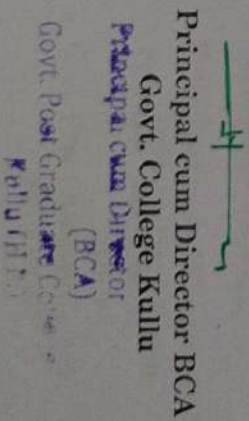 Principal cum Director BCA
Govt. College Kullu
Principal cum Director
(BCA)
Govt. Post Graduate College
Kullu (H.P.)